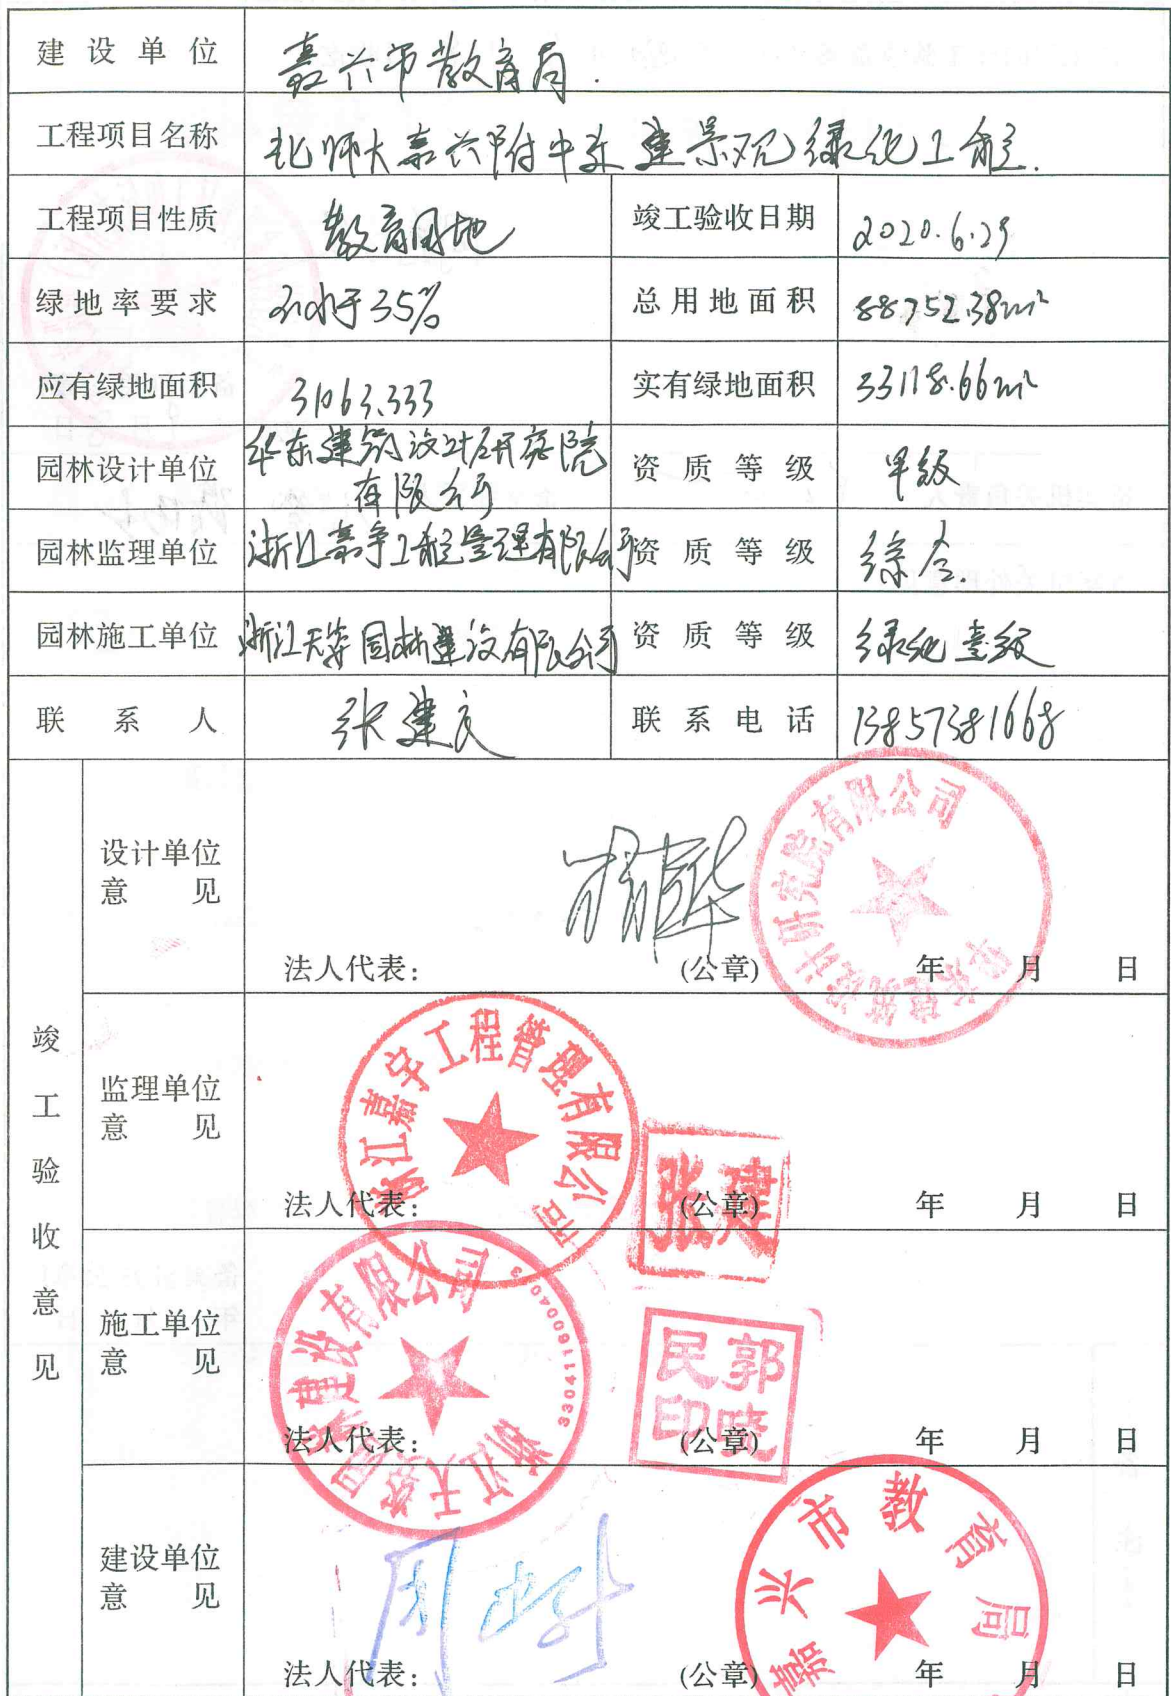 建设单位 嘉兴市教育局.
工程项目名称 北师大嘉兴附中新建景观绿化工程.
工程项目性质 教育用地 竣工验收日期 2020.6.29
绿地率要求 不小于35% 总用地面积 88752.38m²
应有绿地面积 31063.333 实有绿地面积 33118.66m²
园林设计单位 华东建筑设计研究院
有限公司 资质等级 甲级
园林监理单位 浙江嘉宇工程管理有限公司 资质等级 综合.
园林施工单位 浙江天姿园林建设有限公司 资质等级 绿化壹级
联系人 张建良 联系电话 13857381668
竣工验收意见
设计单位
意见
华东建筑设计研究院有限公司
法人代表: (公章) 年 月 日
监理单位
意见
浙江嘉宇工程管理有限公司
张建
法人代表: (公章) 年 月 日
施工单位
意见
浙江天姿园林建设有限公司
郭晓民印
法人代表: (公章) 年 月 日
建设单位
意见
嘉兴市教育局
法人代表: (公章) 年 月 日